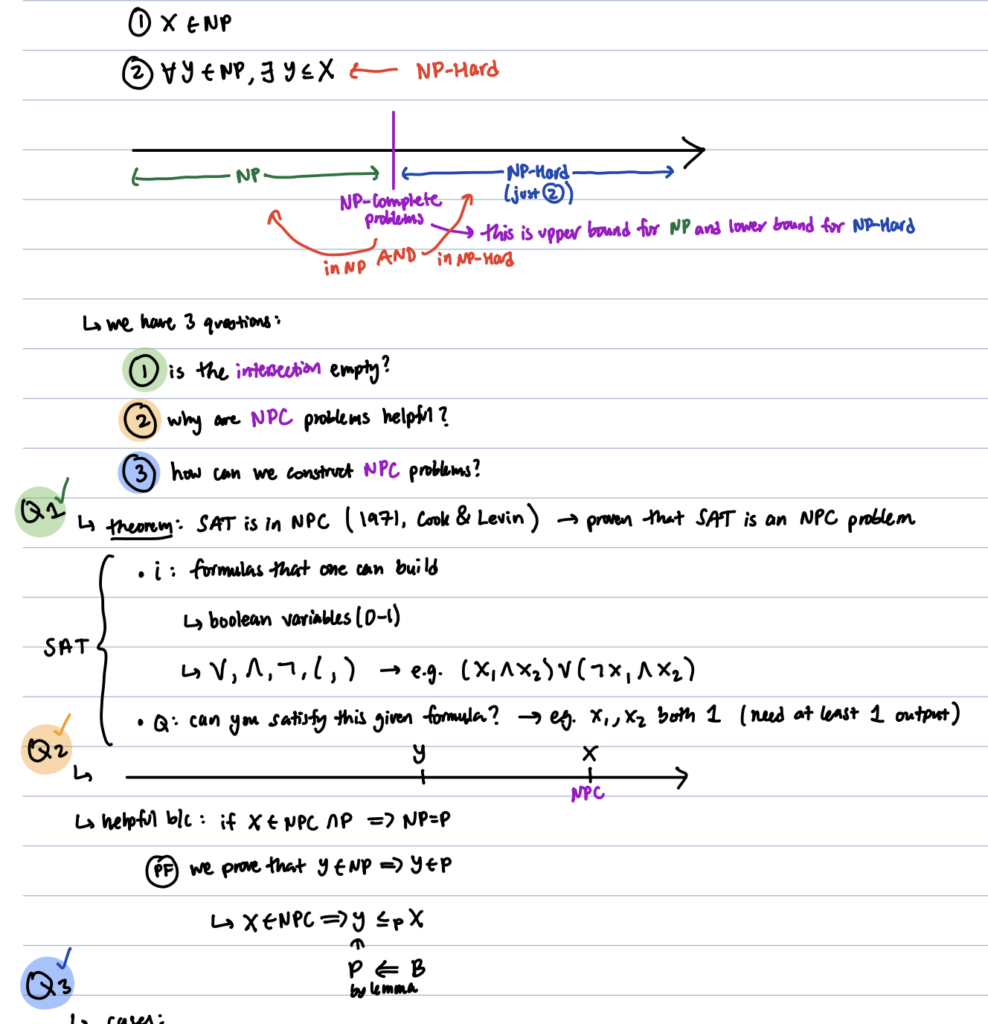 ① X ∈ NP
② ∀ Y ∈ NP, ∃ Y ≤ X ← NP-Hard
NP
NP-Hard
(just ②)
NP-Complete
problems
→ this is upper bound for NP and lower bound for NP-Hard
in NP AND in NP-Hard
↳ we have 3 questions:
① is the intersection empty?
② why are NPC problems helpful?
③ how can we construct NPC problems?
Q1 ✓
↳ theorem: SAT is in NPC (1971, Cook & Levin) → proven that SAT is an NPC problem
SAT {
• i: formulas that one can build
↳ boolean variables (0-1)
↳ ∨, ∧, ¬, (, ) → e.g. (x₁ ∧ x₂) ∨ (¬x₁ ∧ x₂)
• Q: can you satisfy this given formula? → eg. x₁, x₂ both 1 (need at least 1 output)
Q2 ✓
↳ y X
NPC
↳ helpful b/c: if X ∈ NPC ∩ P => NP=P
PF we prove that y ∈ NP => y ∈ P
↳ X ∈ NPC => y ≤p X
↑
P ⇐ B
by lemma
Q3 ✓
↳ cases: